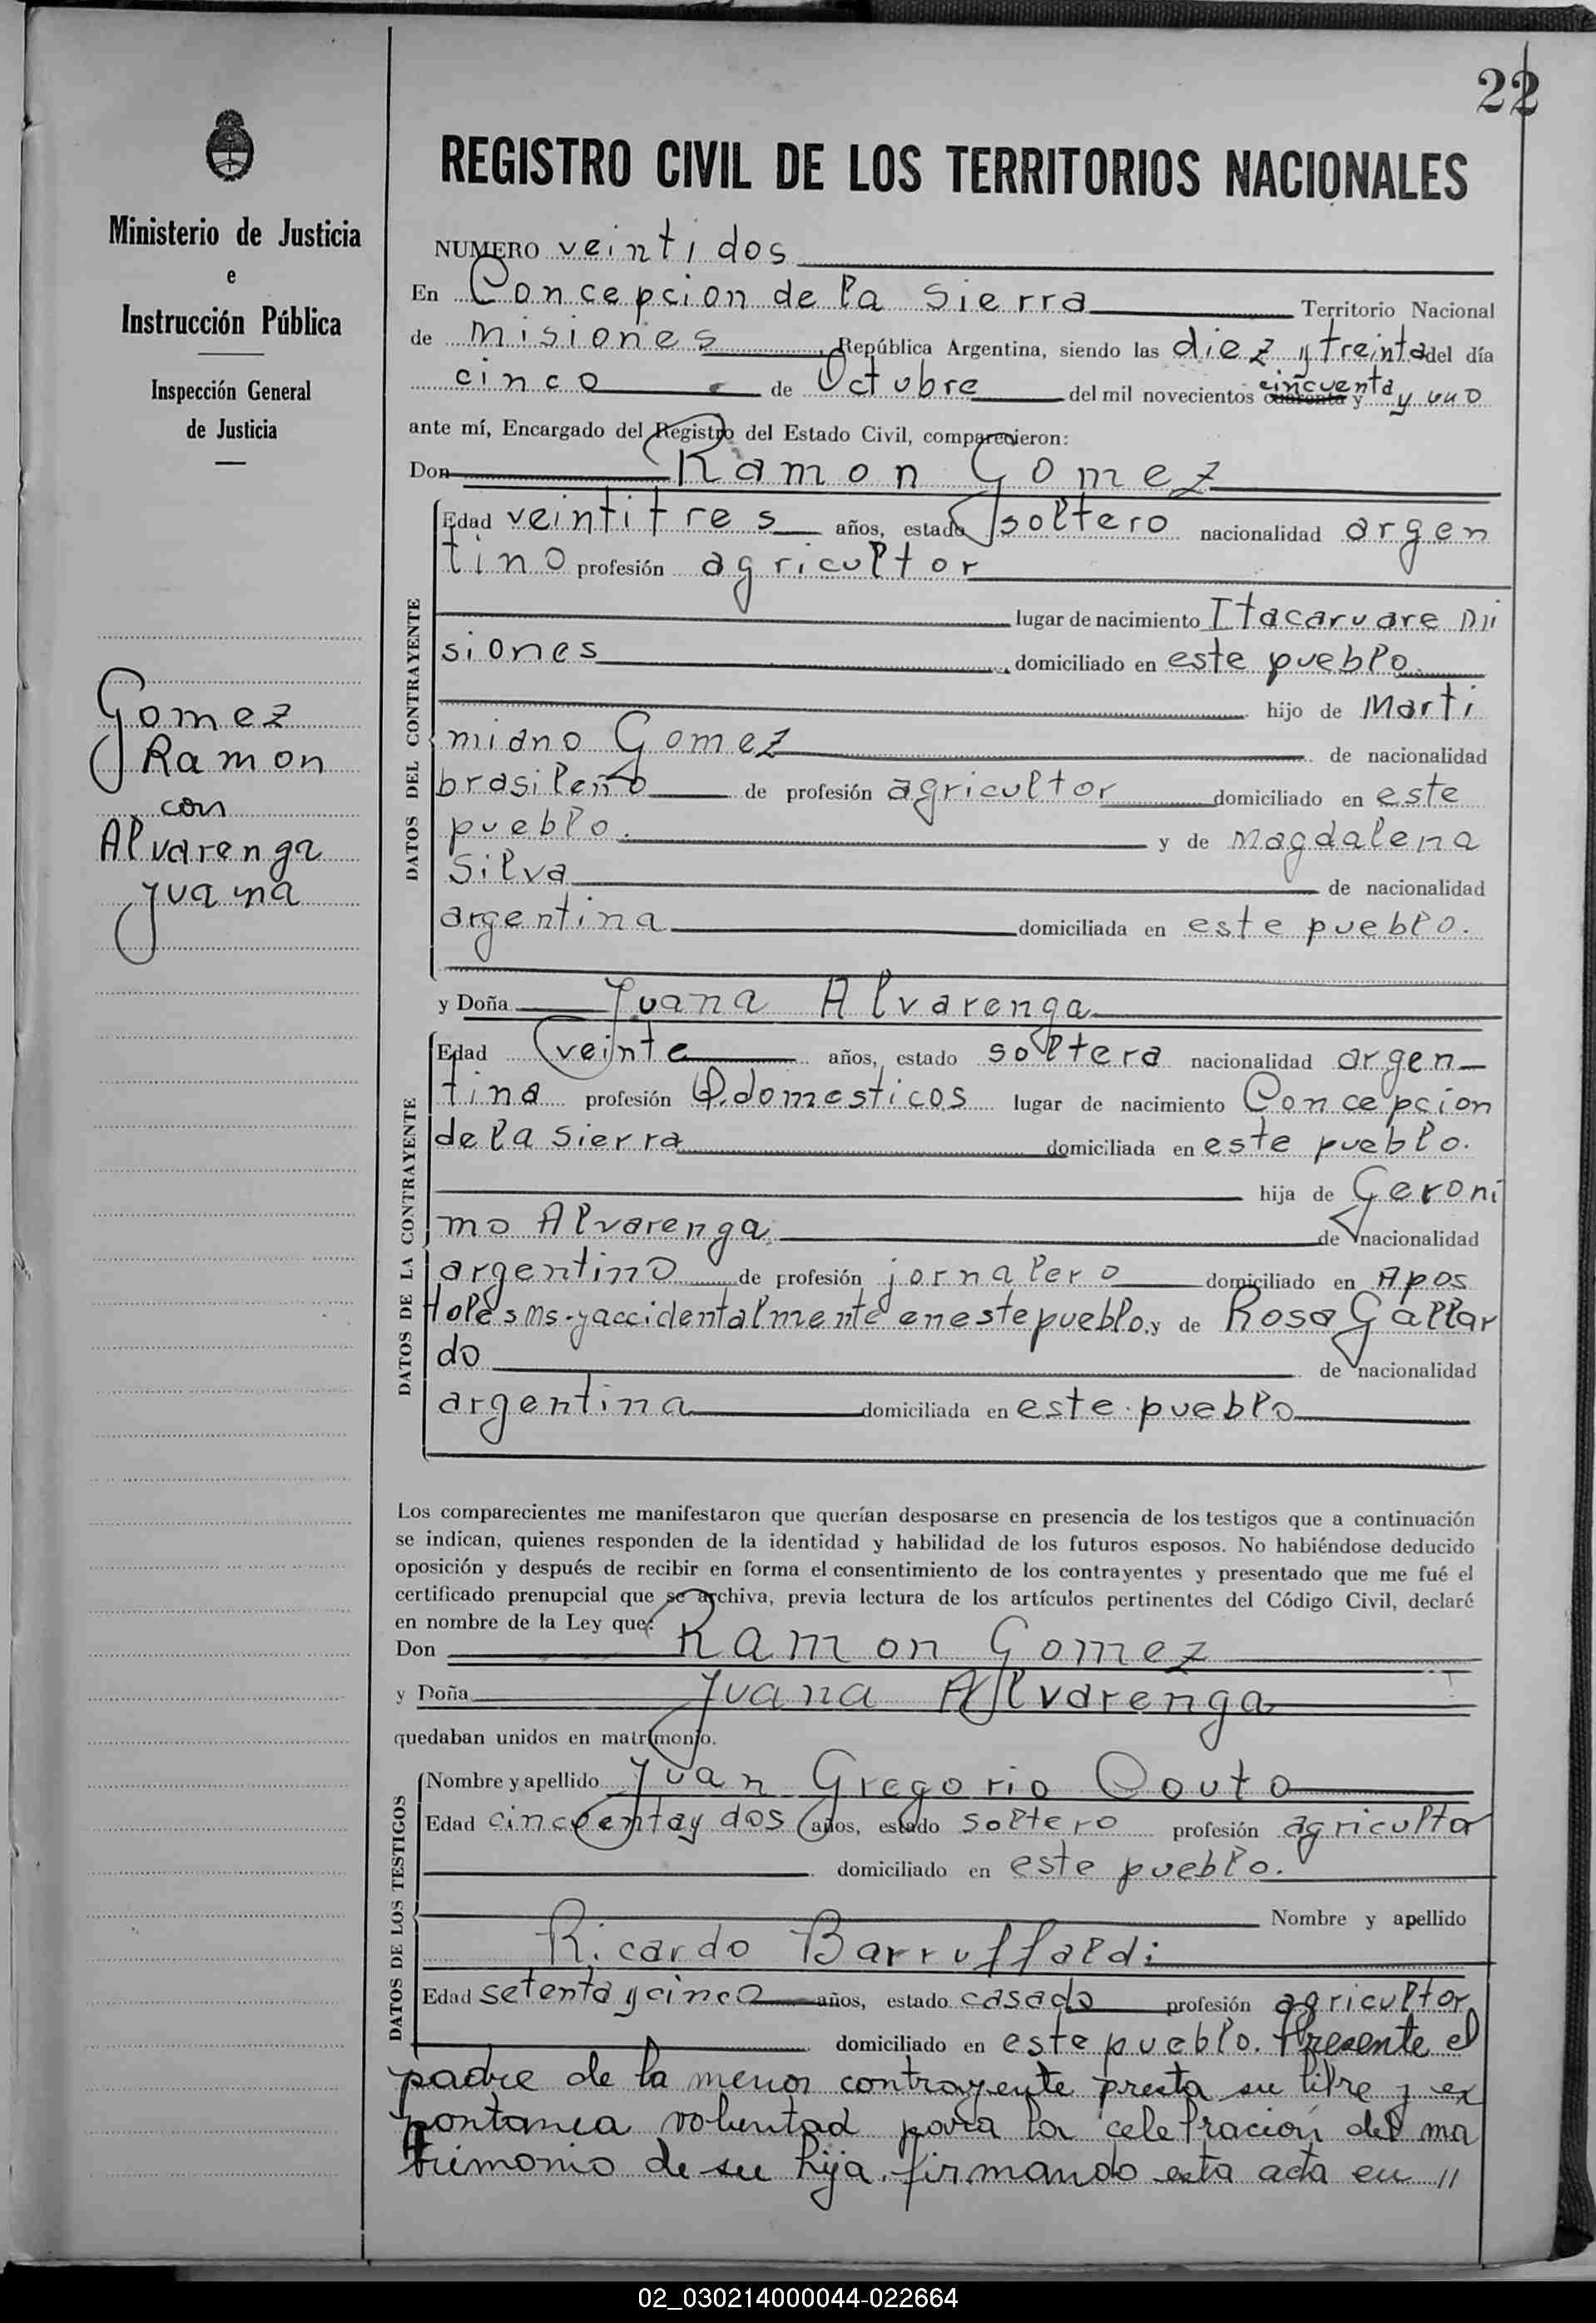 22
REGISTRO CIVIL DE LOS TERRITORIOS NACIONALES
Ministerio de Justicia
e
Instrucción Pública
Inspección General
de Justicia
Gomez
Ramon
con
Alvarenga
Juana
NUMERO veinti dos
En Concepcion de la Sierra Territorio Nacional
de misiones, República Argentina, siendo las diez y treinta del día
cinco de Octubre del mil novecientos cuarenta y cincuenta y uno
ante mí, Encargado del Registro del Estado Civil, comparecieron:
Don Ramon Gomez
DATOS DEL CONTRAYENTE
Edad veintitres años, estado soltero nacionalidad argen
tino profesión agricultor
lugar de nacimiento Itacaruare Mi
siones domiciliado en este pueblo
hijo de Marti
miano Gomez de nacionalidad
brasileño de profesión agricultor domiciliado en este
pueblo. y de Magdalena
Silva de nacionalidad
argentina domiciliada en este pueblo.
y Doña Juana Alvarenga
DATOS DE LA CONTRAYENTE
Edad veinte años, estado soltera nacionalidad argen-
tina profesión Q. domesticos lugar de nacimiento Concepcion
de la Sierra domiciliada en este pueblo.
hija de Geroni
mo Alvarenga de nacionalidad
argentino de profesión jornalero domiciliado en Apos
toles Ms. y accidentalmente en este pueblo. y de Rosa Gallar
do de nacionalidad
argentina domiciliada en este pueblo
Los comparecientes me manifestaron que querían desposarse en presencia de los testigos que a continuación
se indican, quienes responden de la identidad y habilidad de los futuros esposos. No habiéndose deducido
oposición y después de recibir en forma el consentimiento de los contrayentes y presentado que me fué el
certificado prenupcial que se archiva, previa lectura de los artículos pertinentes del Código Civil, declaré
en nombre de la Ley que:
Don Ramon Gomez
y Doña Juana Alvarenga
quedaban unidos en matrimonio.
DATOS DE LOS TESTIGOS
Nombre y apellido Juan Gregorio Couto
Edad cincuenta y dos años, estado soltero profesión agricultor
domiciliado en este pueblo.
Nombre y apellido
Ricardo Barruffaldi
Edad setenta y cinco años, estado casado profesión agricultor
domiciliado en este pueblo. Presente el
padre de la menor contrayente presta su libre y ex
pontanea voluntad para la celebración del ma
trimonio de su hija. firmando esta acta en //
02_030214000044-022664